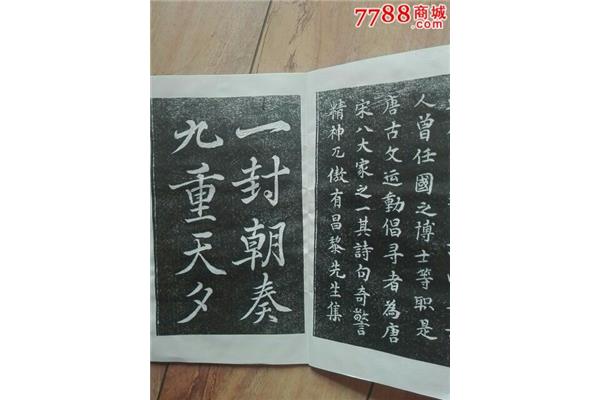 7788商城
7788.com
人曾任國之博士等职是
唐古文运動倡寻者為唐
宋八大家之一其詩句奇警
精神兀傲有昌黎先生集
一封朝奏
九重天夕